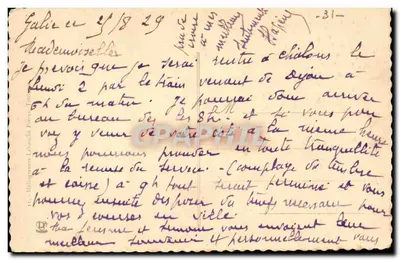 le 25/8 29
- 31 -
Mademoiselle
Je prevois que je serai rentré à Chalons le
lundi 2 par le train venant de Dijon à
du matin. Je pourrai donc arriver
au bureau dès les 8h. et si vous pou
vez y venir de votre côté à la même heure
nous pourrons procéder en toute tranquillité
à la remise du service - (comptage de timbres
et caisse) à 9h tout serait terminé et vous
pourrez ensuite disposer du temps nécessaire pour
vos courses en ville
et Simone vous envoient leur
meilleur souvenir et personnellement vous
à mes
meilleurs
sentiments